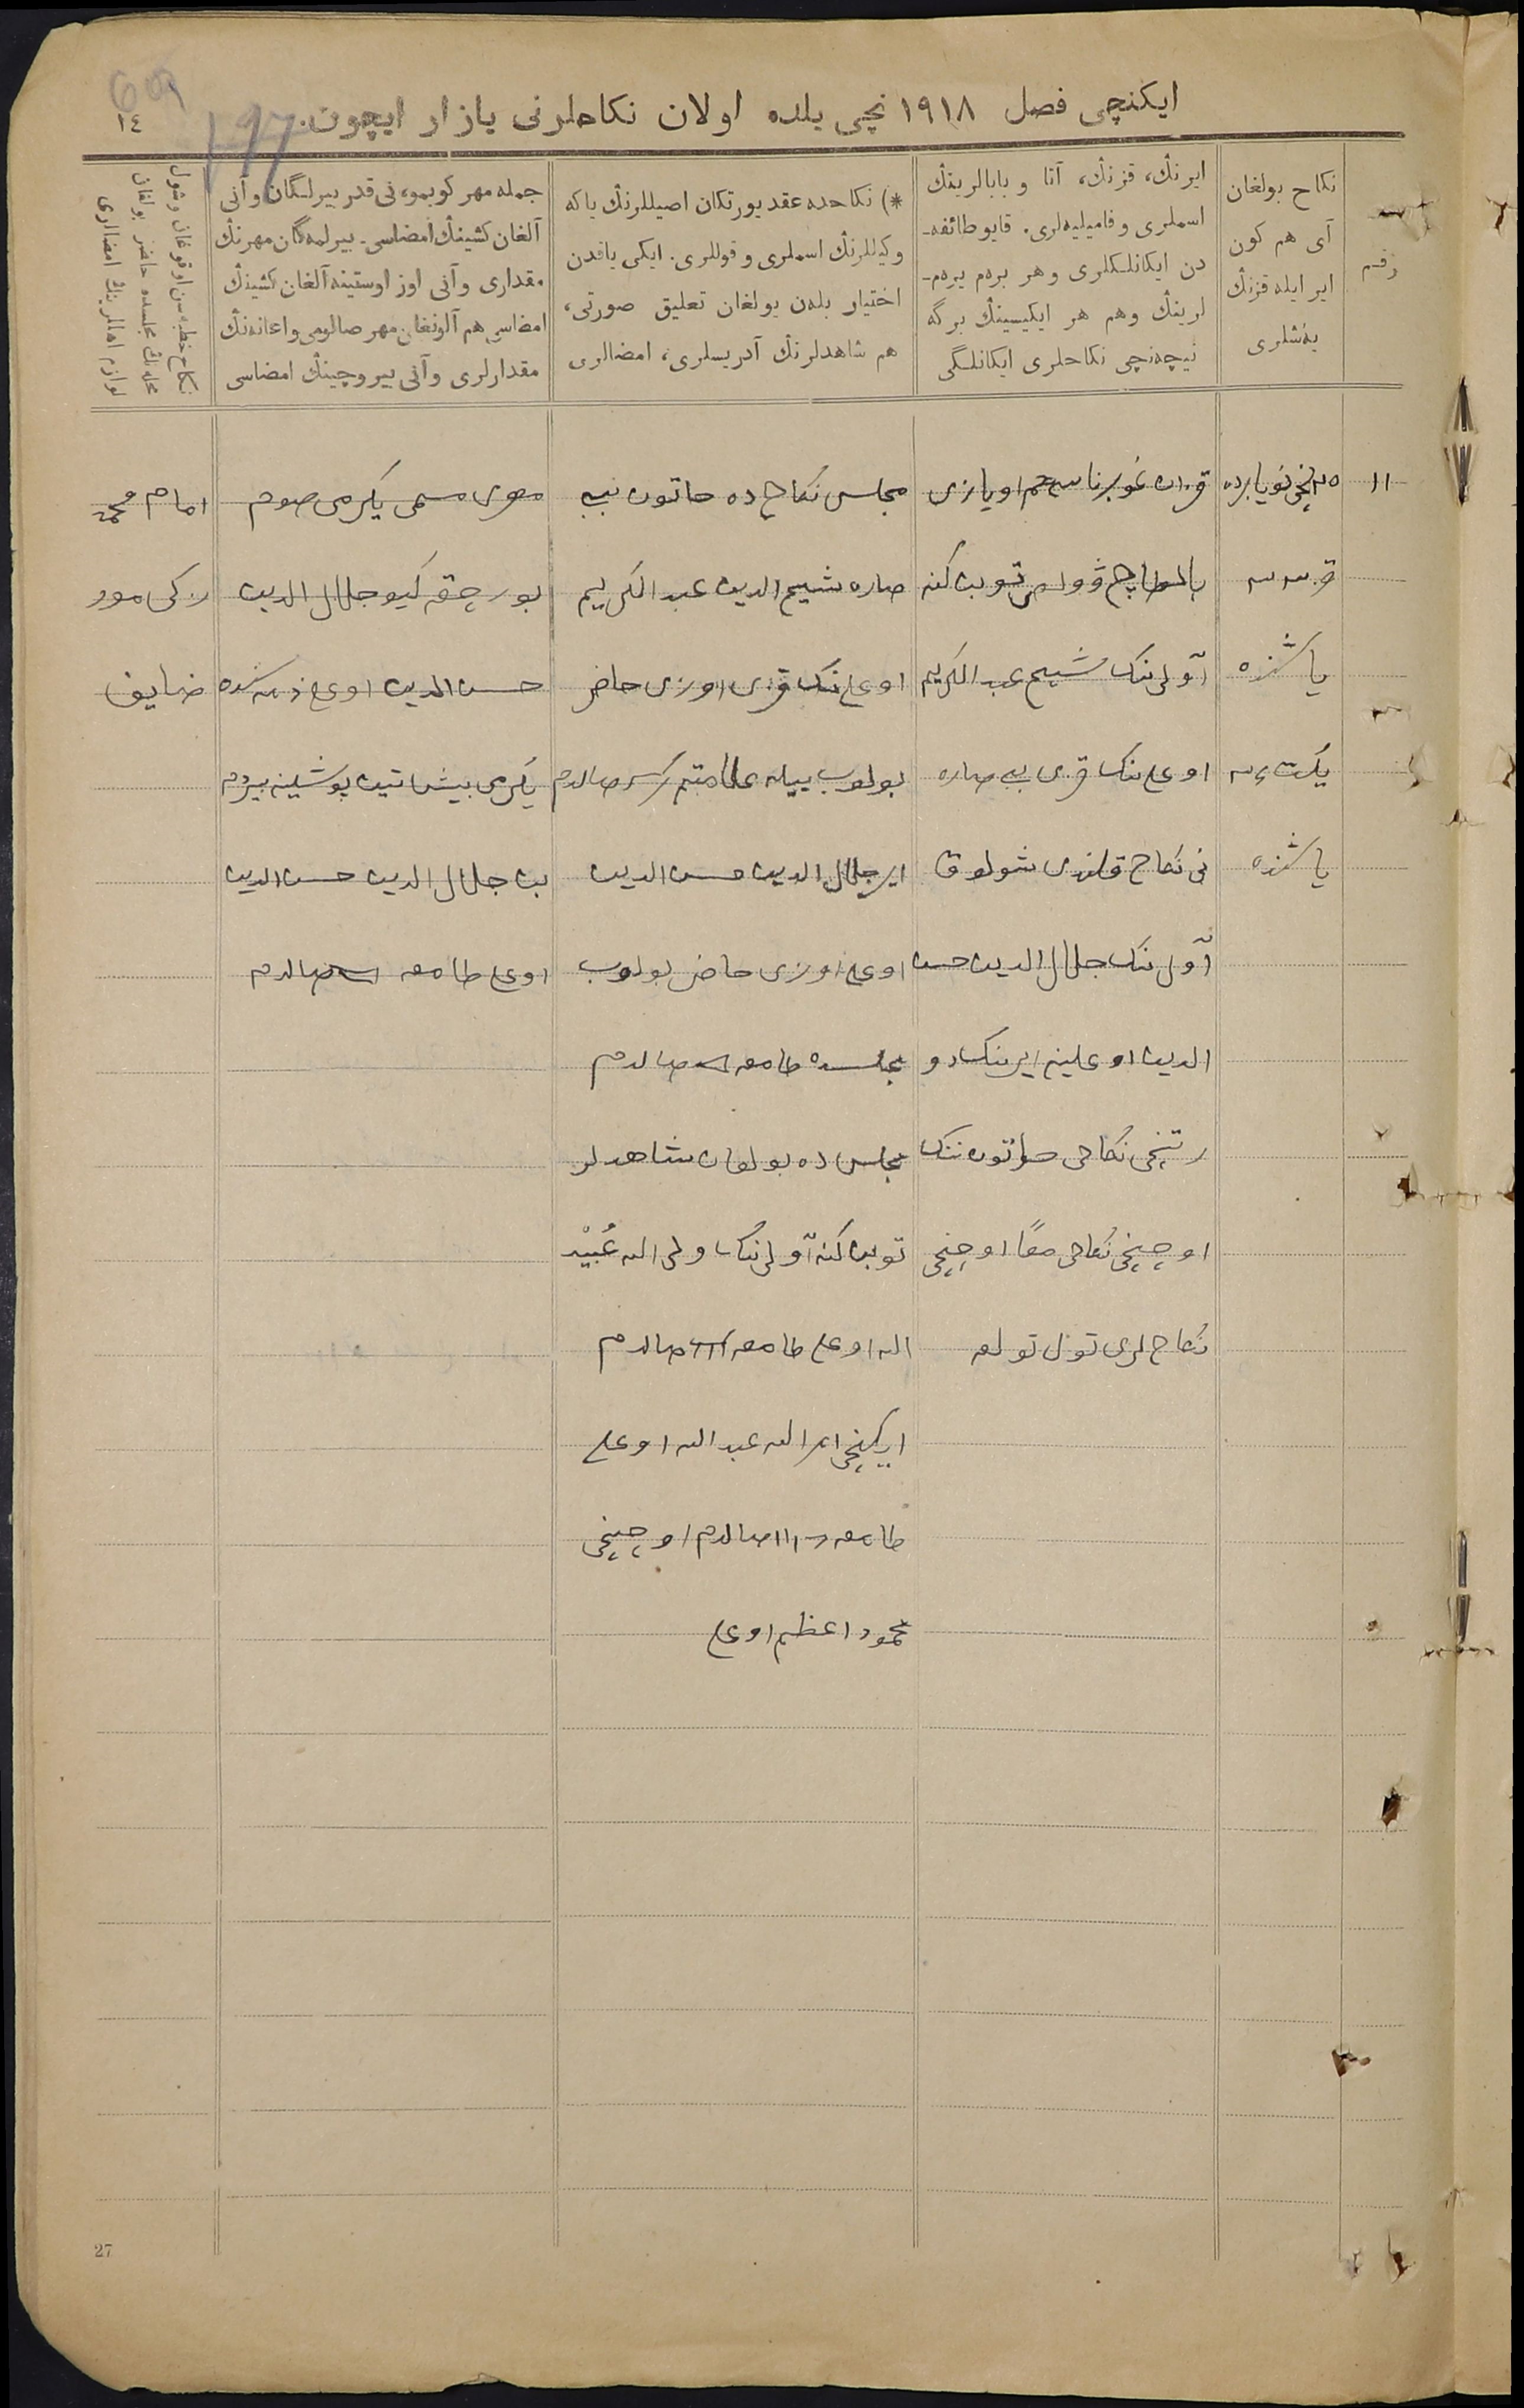 ایكنچی فصل ۱۹۱۸ نچی یلده اولان نكاحلرنی یازار ایچون.
١٤
رقم
نكاح بولغان
آی هم كون
ایر ایله قزنڭ
یەشلری
ایرنڭ، قزنڭ، آتا و بابالرینڭ
اسملری و فامیلیەلری. قایو طائفه‌ـ
دن ایكانلكلری و هر برەم برەم‌ـ
لرینڭ و هم هر ایكیسینڭ برگه
نیچەنچی نكاحلری ایكانلگی
*) نكاحده عقد یورتكان اصیللرنڭ یاكه
وكیللرنڭ اسملری و قوللری. ایكی یاقدن
اختیار بلەن بولغان تعلیق صورتی،
هم شاهدلرنڭ آدریسلری، امضالری
جمله مهر كوبمو، نی قدر بیرلگان و آنی
آلغان كشینڭ امضاسی. بیرلمەگان مهرنڭ
مقداری و آنی اوز اوستینه آلغان كشینڭ
امضاسی هم آلونغان مهر صالومی و اعانەنڭ
مقدارلری و آنی بیروچینڭ امضاسی
نكاح خطبەسن اوقوغان و شول
محلەنڭ مجلسده حاضر بولغان
لوازم اهللرینڭ امضالری
١١
٢٥نچی نویابرده
یاشنده
یكت
یاشنده
قزان غوبرناسی اویازی
بالطاچ ۋولصی توبن كنه
آولی ننك شیخ عبد الكریم
اوغلی ننك قزی بی‌بی صاره
نی نكاح قلندی شولوق
آول ننك جلال الدین حسن
الدین اوغلینه ایرننك دو
رتنچی نكاحی خاتون ننك
اوچنچی نكاحی معًا اوچنچی
نكاح لری تول تولمه
مجلس نكاح ده خاتون بی‌بی
صاره شیخ الدین عبد الكریم
اوغلی ننك قزی اوزی حاضر
بولوب بیله علامتم صالدم
ایر جلال الدین حسن الدین
اوغلی اوزی حاضر بولوب
مجلسده طامغه صالدم
مجلس ده بولغان شاهدلر
توبن كنه آولی ننك ولی الله عُبَیْد
الله اوغلی طامغه صالدم
ایكنچی الله عبد الله اوغلی
طامغه صالدم اوچنچی
محمود اعظم اوغلی
مهری مسمی یكرمی صوم
بورچقه كیو جلال الدین
حسن الدین اوغلی ذمه‌سنده
یكرمی بیش تین پوشلینه بیردم
بن جلال الدین حسن الدین
اوغلی طامغه صالدم
امام محمد
27